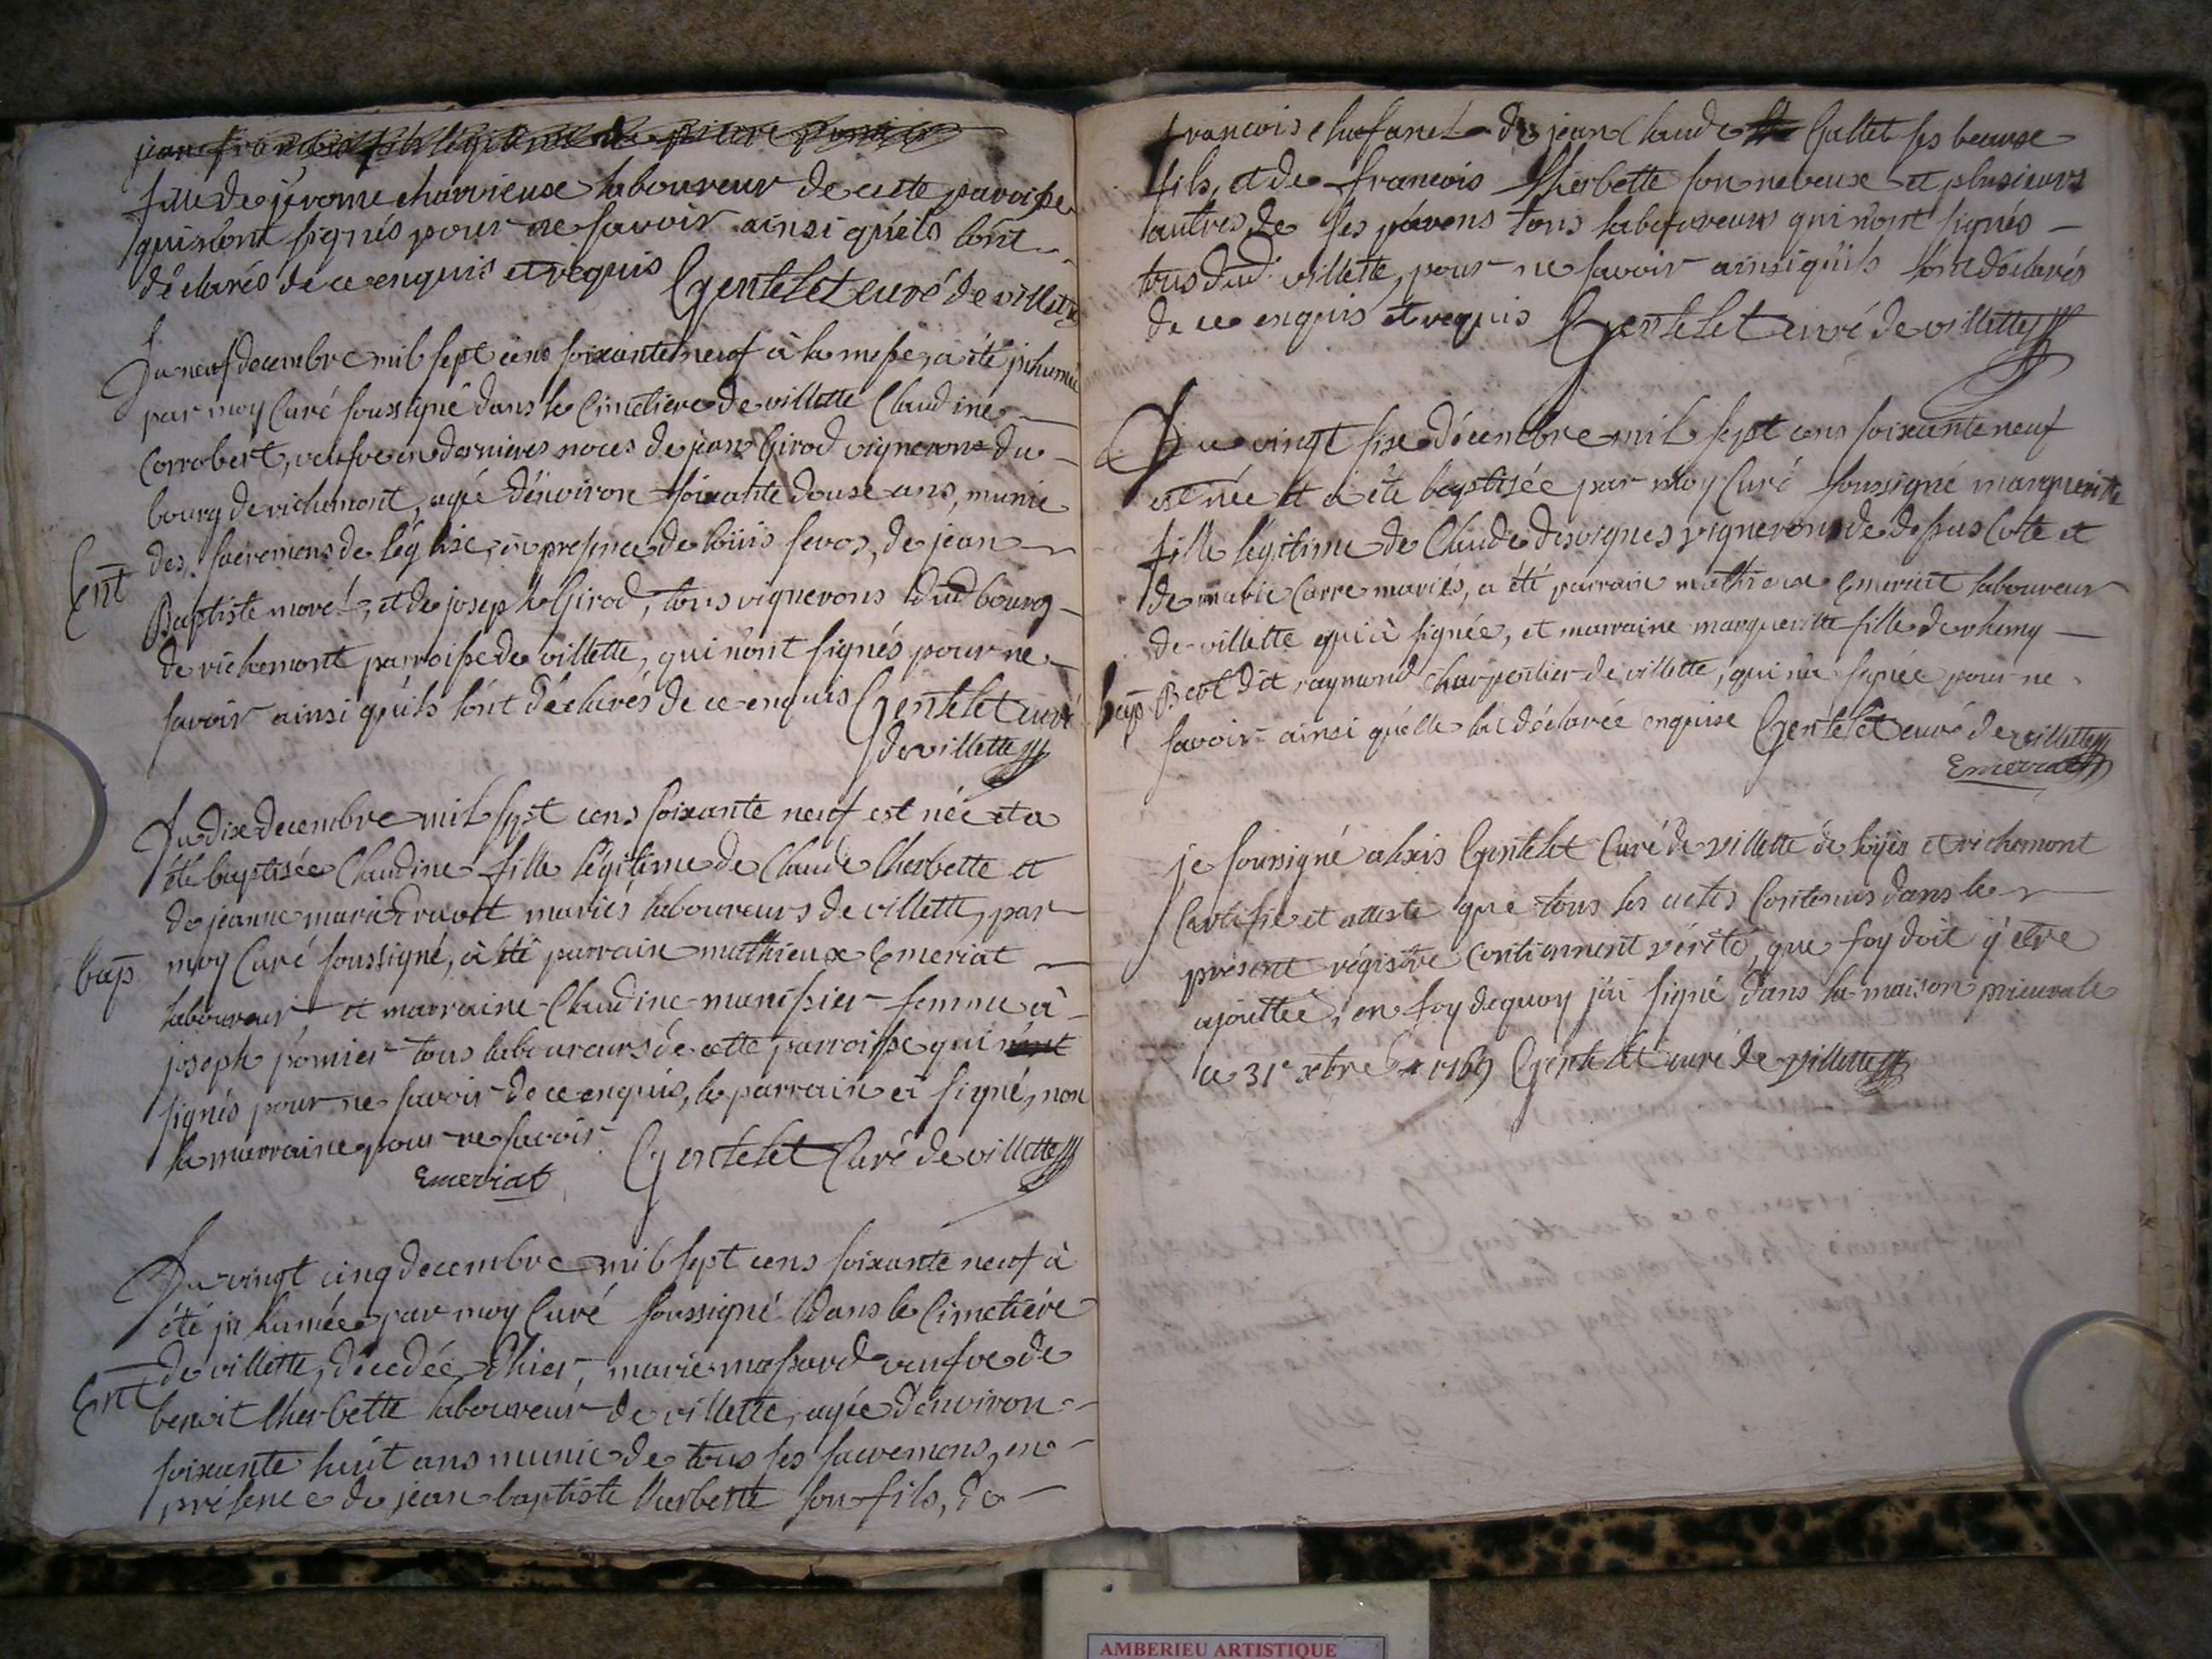 jean françois fils légitime de pierre pomier
fille de jérome charvieux laboureur de cette paroisse
qui n'ont signés pour ne savoir ainsi qu'ils l'ont
déclarés de ce enquis et requis Gentelet curé de villette
Du neuf decembre mil sept cens soixante neuf à la messe, a été inhumée
par moy Curé soussigné dans le Cimetiere de villette Claudine
Corrobert, veufve en dernieres noces de jean Girod vigneron du
bourg de richemont, agée d'environ soixante douse ans, munie
des sacremens de l'église, en presence de loüis fevos, de jean
Ent
Baptiste morel, et de joseph Girod, tous vignerons dud bourg
de richemont parroisse de villette, qui n'ont signés pour ne
savoir ainsi qu'ils l'ont déclarés de ce enquis Gentelet curé
de villette
Du dix decembre mil sept cens soixante neuf est née et a
été baptisée Claudine fille légitime de Claude Cherbette et
de jeanne marie mariés laboureurs de villette, par
bap. moy Curé soussigné, a été parrain mathieux Emeriat
laboureur et marraine Claudine manissier femme à
joseph pomier tous laboureurs de cette parroisse qui n'ont
signés pour ne savoir de ce enquis, le parrain a signé, non
la marraine pour ne savoir.
Emeriat Gentelet Curé de villette
Du vingt cinq decembre mil sept cens soixante neuf à
été inhumée par moy Curé soussigné dans le Cimetiére
de villette, décedée d'hier, marie massard veufve de
Ent
benoit Cherbette laboureur de villette, agée d'environ
soixante huit ans munie de tous ses sacremens, en
présence de jean baptiste Cherbette son fils, de
francois chafanel de jean Claude Gallet ses beaux
fils, et de francois Cherbette son neveux et plusieurs
autres de ses parens tous laboureurs qui n'ont signés
tous dud. villette, pour ne savoir ainsi qu'ils l'ont déclarés
de ce enquis et requis Gentelet curé de villette
Du vingt six décembre mil sept cens soixante neuf
est née et a été baptisée par moy Curé soussigné marguerite
fille légitime de Claude desvignes vigneron de dessus Cote et
de marie Carre mariés, a été parrain mathieux Emeriat laboureur
de villette qui à signée, et marraine marguerite fille de rhemy
bap. Berl dit raymond charpentier de villette, qui n'a signée pour ne
savoir ainsi qu'elle l'a déclarée enquise Gentelet curé de villette
Emeriat
je soussigné alexis Gentelet Curé de villette de loyes et richemont
Certifie et atteste que tous les actes Contenus dans le
présent régistre contiennent vérité, que foy doit y être
ajouttée, en foy dequoy j'ai signé dans la maison prieurale
ce 31e xbre 1769 Gentelet curé de villette
AMBERIEU ARTISTIQUE